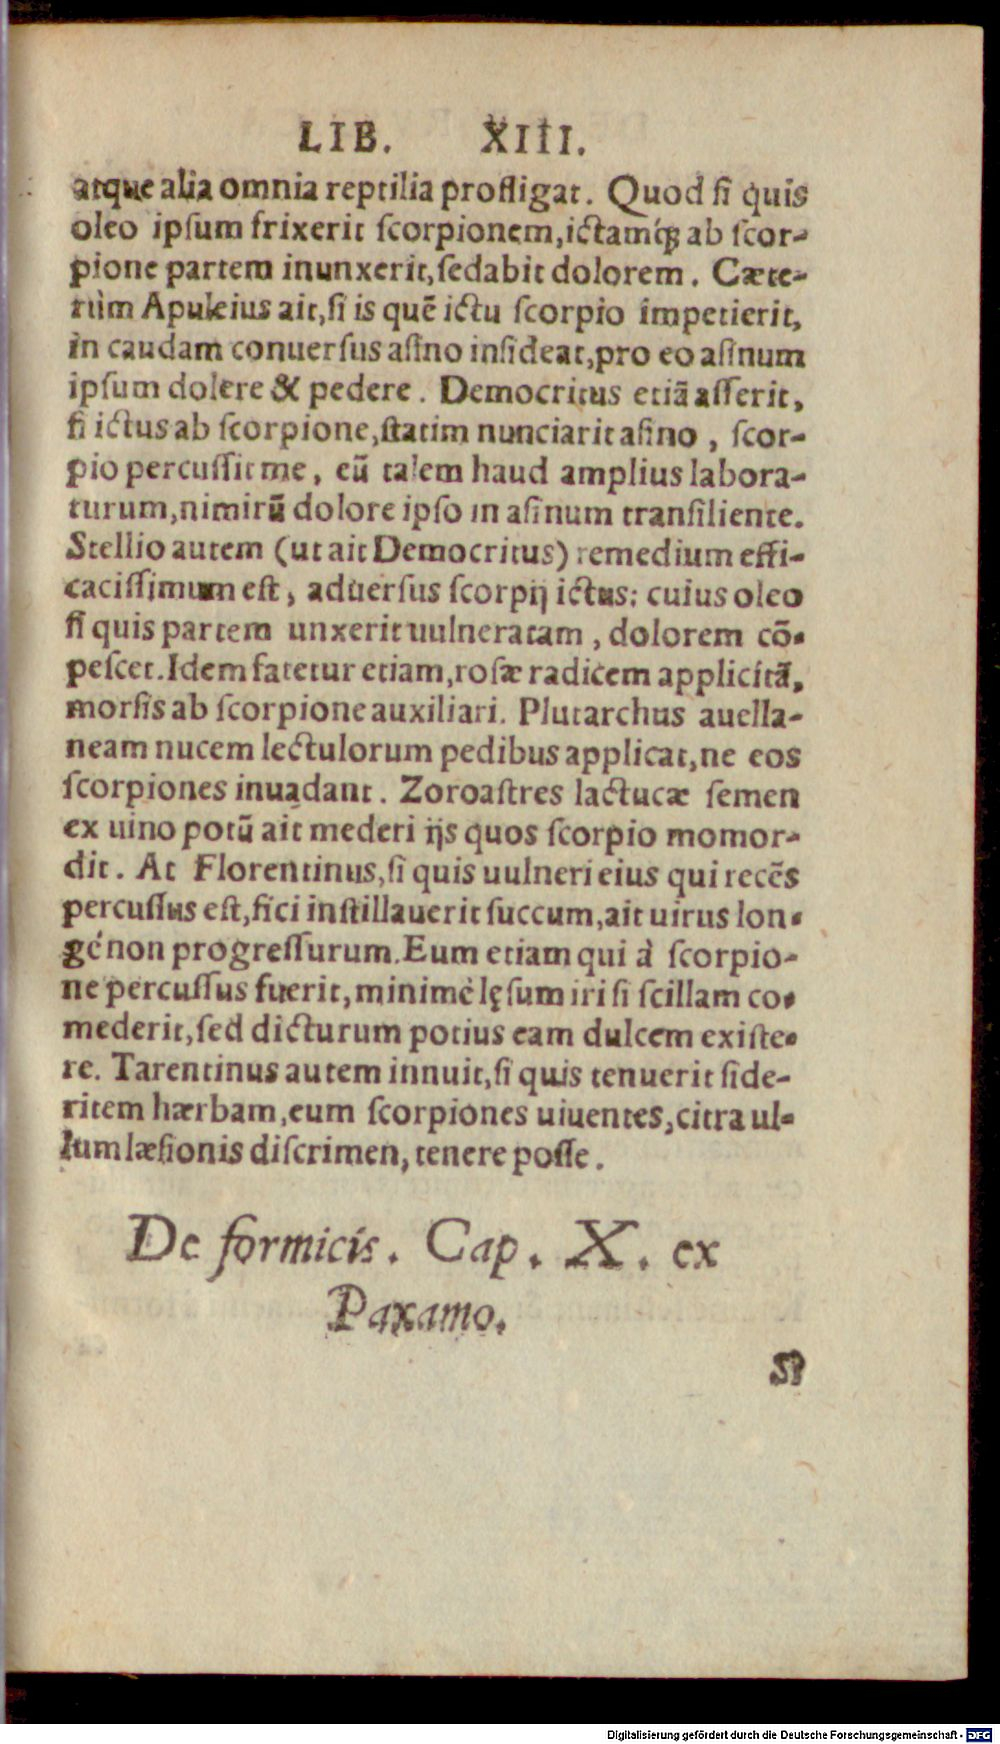 LIB. XIII.
atque alia omnia reptilia profligat. Quod ſi quis
oleo ipſum frixerit ſcorpionem, ictamq́ꝫ ab ſcor-
pione partem inunxerit, ſedabit dolorem. Cæte-
rùm Apuleius ait, ſi is quẽ ictu ſcorpio impetierit,
in caudam conuerſus aſino inſideat, pro eo aſinum
ipſum dolere & pedere. Democritus etiã aſſerit,
ſi ictus ab ſcorpione, ſtatim nunciarit aſino, ſcor-
pio percuſſit me, eũ talem haud amplius labora-
turum, nimirũ dolore ipſo in aſinum tranſiliente.
Stellio autem (ut ait Democritus) remedium effi-
caciſſimum eſt, aduerſus ſcorpij ictus: cuius oleo
ſi quis partem unxerit uulneratam, dolorem cõ-
peſcet. Idem fatetur etiam, roſæ radicem applicitã,
morſis ab ſcorpione auxiliari. Plutarchus auella-
neam nucem lectulorum pedibus applicat, ne eos
ſcorpiones inuadant. Zoroaſtres lactucæ ſemen
ex uino potũ ait mederi ijs quos ſcorpio momor-
dit. At Florentinus, ſi quis uulneri eius qui recẽs
percuſſus eſt, fici inſtillauerit ſuccum, ait uirus lon-
gè non progreſſurum. Eum etiam qui à ſcorpio-
ne percuſſus fuerit, minimè lęſum iri ſi ſcillam co-
mederit, ſed dicturum potius eam dulcem exiſte-
re. Tarentinus autem innuit, ſi quis tenuerit ſide-
ritem hærbam, eum ſcorpiones uiuentes, citra ul-
lum læſionis diſcrimen, tenere poſſe.
De formicis. Cap. X. ex
Paxamo.
SI
Digitalisierung gefördert durch die Deutsche Forschungsgemeinschaft - DFG